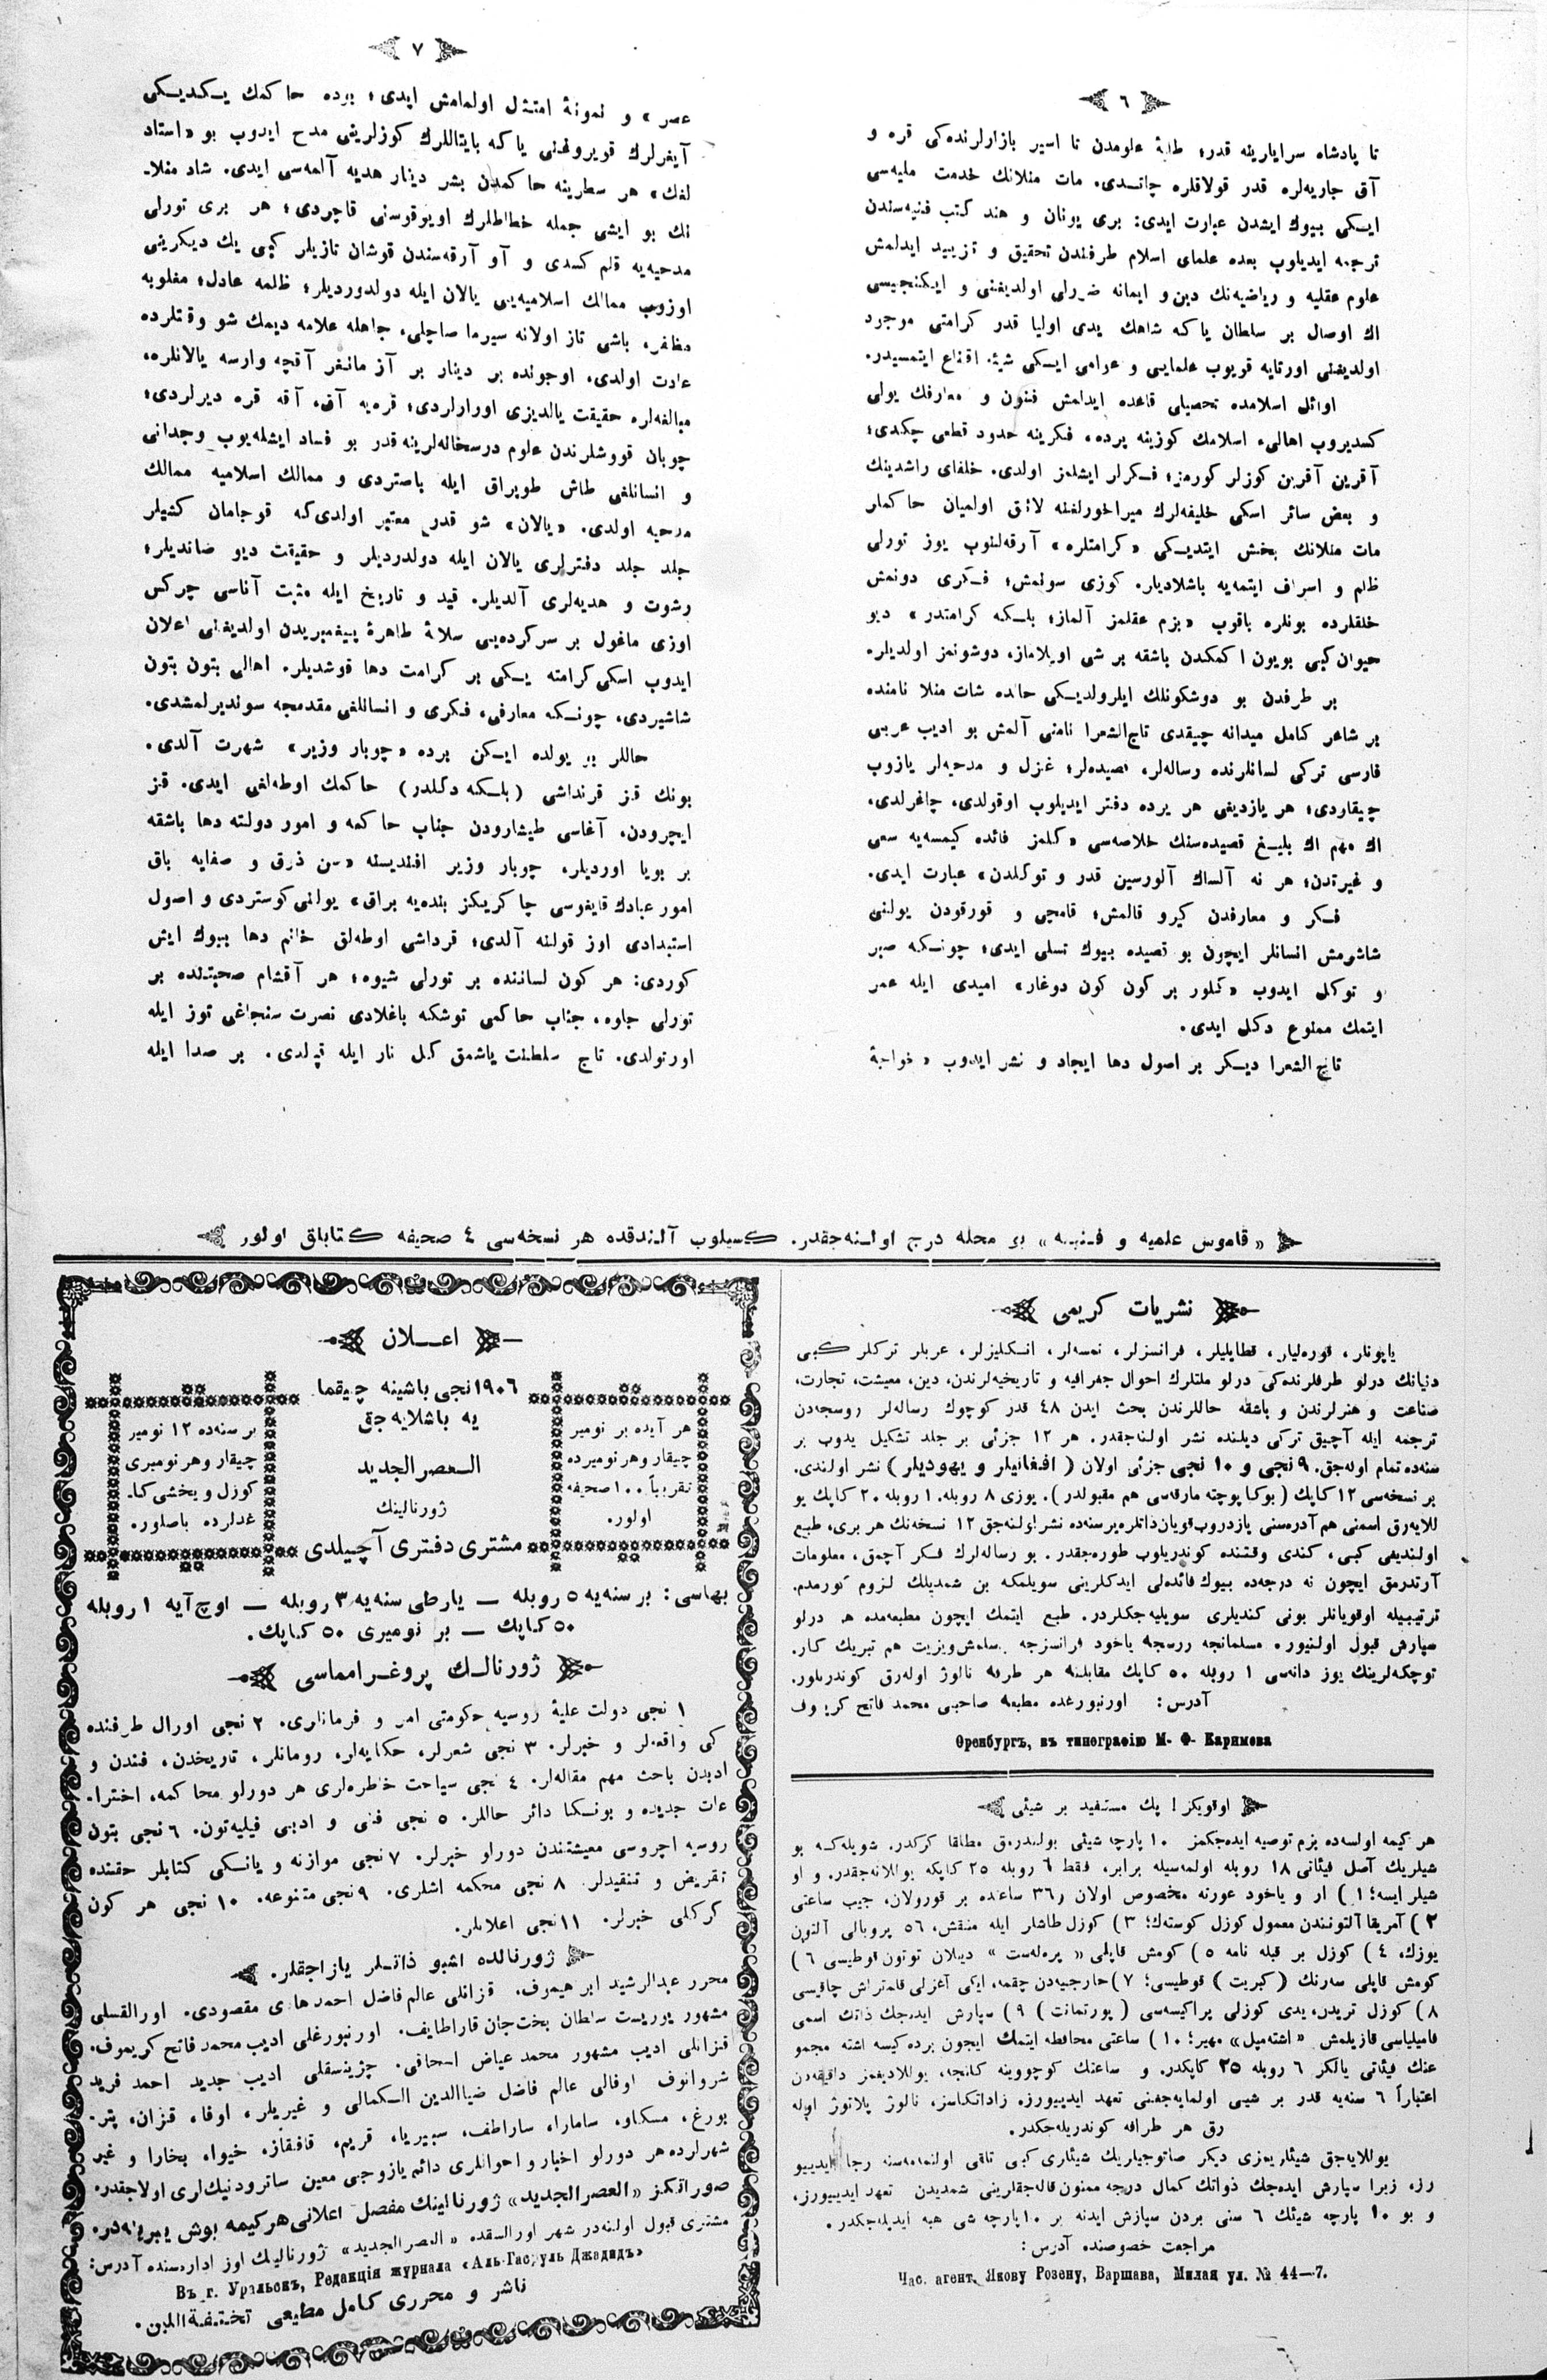 ٦
تا پادشاه سرایارینه قدر؛ طلبهٔ علومدن تا اسیر بازارلرنده‌کی قره و
آق جاریه‌لره قدر قولاقلره چاتـدی. مات منلانك خدمت ملیه‌سی
ایـکی بیوك ایشدن عبارت ایدی: بری یونان و هند کتب فنیه‌سندن
ترجمه ایدیلوب بعده علمای اسلام طرفندن تحقیق و تزیید ایدلمش
علوم عقلیه و ریاضیه‌نك دین و ایمانه ضررلی اولدیغنی و ایـکنجیسی
اك اوصال بر سلطان یا که شاهك یدی اولیا قدر کرامتی موجود
اولدیغنی اورتایه قویوب علمایی و عوامی ایـکی شیئه اقناع ایتمسیدر.
اوائل اسلامده تحصیلی قاعده ایدلمش فنون و معارفك یولی
کسدیروب اهالیٔ اسلامك کوزینه پرده، فـکرینه حدود قطعی چکدی؛
آقرین آقرین کوزلر کورمز؛ فـکرلر ایشلمز اولدی. خلفای راشدینك
و بعض سائر اسکی خلیفه‌لرك میراخورلغنه لائق اولمیان حاکملر
مات منلانك بخش ایتدیـکی «کرامتلره» آرقه‌لنوب یوز تورلی
ظلم و اسراف ایتمه‌یه باشلادیلر. کوزی سونمش؛ فـکری دونمش
خلقلرده بونلره باقوب «بزم عقلمز آلماز؛ بلـکه کرامتدر» دیو
حیوان کبی بویون اکمکدن باشقه بر شی اویلاماز، دوشونمز اولدیلر.
بر طرفدن بو دوشکونلك ایلرولدیـکی حالده شات منلا نامنده
بر شاعر کامل میدانه چیقدی تاج‌الشعرا نامنی آلمش بو ادیب عربی
فارسی ترکی لسانلرنده رساله‌لر، قصیده‌لر؛ غزل و مدحیه‌لر یازوب
چیقاردی؛ هر یازدیغی هر یرده دفتر ایدیلوب اوقولدی، چاغرلدی.
اك مهم اك بلیـغ قصیده‌سنك خلاصه‌سی «کلمز فائده کیمسه‌یه سعی
و غیرتدن؛ هر نه آلساك آلورسین قدر و توکلدن» عبارت ایدی.
فـکر و معارفدن کیرو قالمش؛ قامچی و قورقودن یولنی
شاشومش انسانلر ایچون بو قصیده بیوك تسلی ایدی؛ چونـکه صبر
و توکل ایدوب «کلور بر کون کون دوغار» امیدی ایله عمر
ایتمك ممنوع دکل ایدی.
تاج الشعرا دیـکر بر اصول دها ایجاد و نشر ایدوب «خواجهٔ
٧
عصر» و نمونهٔ امتثل اولمامش ایدی؛ بوده حاکمك یـکدیـکی
آیغرلرك قویروغنی یا که بایتاللرك کوزلرینی مدح ایدوب بو «استاد
لغك» هر سطرینه حاکمدن بشر دینار هدیه آلمه‌سی ایدی. شاد منلا-
نك بو ایشی جمله خطاطلرك اویوقوسنی قاچردی؛ هر بری تورلی
مدحیه‌یه قلم کسدی و آو آرقه‌سندن قوشان تازیلر کبی یك دیکرینی
اوزوب ممالك اسلامیه‌یی یالان ایله دولدوردیلر؛ ظالمه عادل؛ مغلوبه
مظفر، باشی تاز اولانه سیرما صاچلی، جاهله علامه دیمك شو وقتلرده
عادت اولدی، اوجونده بر دینار بر آز مانغر آقچه وارسه یالانلره،
مبالغه‌لره حقیقت یالدیزی اورارلردی؛ قره‌یه آق، آقه قره دیرلردی؛
چوبان قووشلرندن علوم درسخانه‌لرینه قدر بو فساد ایشله‌یوب وجدانی
و انسانلغی طاش طوپراق ایله باصتردی و ممالك اسلامیه ممالك
مدحیه اولدی. «یالان» شو قدر معتبر اولدی‌که قوجامان کشیلر
جلد جلد دفترلری یالان ایله دولدردیلر و حقیقت دیو صاندیلر؛
رشوت و هدیه‌لری آلدیلر. قید و تاریخ ایله مثبت آناسی چرکس
اوزی ماغول بر سرکرده‌یی سلالهٔ طاهرهٔ پیغمبریدن اولدیغنی اعلان
ایدوب اسکی کرامته یـکی بر کرامت دها قوشدیلر. اهالی بتون بتون
شاشیردی، چونـکه معارفی، فـکری و انسانلغی مقدمجه سوندیرلمشدی.
حاللر بو یولده ایـکن برده «چوبار وزیر» شهرت آلدی.
بونك قز قرنداشی (بلـکه دکلدر) حاکمك اوطه‌لغی ایدی. قز
ایچرودن، آغاسی طیشارودن جناب حاکمه و امور دولته دها باشقه
بر بویا اوردیلر. چوبار وزیر افندیسنه «سن ذوق و صفایه باق
امور عبادك قایغوسی چاکریکز بنده‌یه براق» یولنی کوستردی و اصول
استبدادی اوز قولنه آلدی؛ قرداشی اوطه‌لق خانم دها بیوك ایش
کوردی: هر کون لساننده بر تورلی شیوه؛ هر آقشام صحبتنده بر
تورلی جلوه، جناب حاکمی توشکه باغلادی نصرت سنجاغی توز ایله
اورتولدی. تاج سلطنت یاشمق کل نار ایله قپلدی. بر صدا ایله
«قاموس علمیه و فـنیـه» بو محله درج اولـنه‌جقدر. کسیلوب آلـندقده هر نسخه‌سی ٤ صحیفه کتاباق اولور
نشریات کریمی
یاپونلر، قوره‌لیلر، قطایلیلر، فرانسزلر، نمسه‌لر، انـکلیزلر، عربلر ترکلر کبی
دنیانك درلو طرفلرنده‌کی درلو ملتلرك احوال جغرافیه و تاریخیه‌لرندن، دین، معیشت، تجارت،
صناعت و هنرلرندن و باشقه حاللرندن بحث ایدن ٤٨ قدر کوچوك رساله‌لر روسجه‌دن
ترجمه ایله آچیق ترکی دیلنده نشر اولنه‌جقدر. هر ١٢ جزئی بر جلد تشکیل یدوب بر
سنه‌ده تمام اوله‌جق. ٩ نجی و ١٠ نجی جزئی اولان (افغانیلر و یهودیلر) نشر اولندی.
بر نسخه‌سی ١٢ کاپك (بوکا پوچته مارقه‌سی هم مقبولدر). یوزی ٨ روبله. ١ روبله ٢٠ کاپك یو
للایه‌رق اسمنی هم آدره‌سنی یازدروب قویان ذاتلره بر سنه‌ده نشر اولنه‌جق ١٢ نسخه‌نك هر بری، طبع
اولندیغی کبی، کندی وقتنده کوندریلوب طوره‌جقدر. بو رساله‌لرك فـکر آچمق، معلومات
آرتدرمق ایچون نه درجه‌ده بیوك فائده‌لی ایدکلرینی سویلمکه بن شمدیلك لزوم کورمدم.
ترتیبیله اوقویانلر بونی کندیلری سویلیه‌جکلردر. طبع ایتمك ایچون مطبعه‌مده هر درلو
سپارش قبول اولنیور. مسلمانجه روسجه یاخود فرانسزجه یـسامش ویزیت هم تبریك کار-
توچکه‌لرینك یوز دانه‌سی ١ روبله ٥٠ کاپك مقابلنه هر طرفه نالوژ اوله‌رق کوندریلور.
آدرس: اورنبورغده مطبعه صاحبی محمد فاتح کریموف
Оренбургъ, въ типографію М. Ф. Каримова
اوقویکز! پك مستفید بر شیئی
هر کیمه اولسه‌ده بزم توصیه ایده‌جکمز ١٠ پارچه شیئی بولندرمق مطلقا کرکدر. شویله‌که بو
شیلریك آصل فیئاتی ١٨ روبله اولمه‌سیله برابر، فقط ٦ روبله ٢٥ کاپکه یوللانه‌جقدر. و او
شیلر ایسه؛ ١) ار و یاخود عورته مخصوص اولان و ٣٦ ساعده بر قورولان، جیب ساعتی
٢) آمریقا آلتونـندن معمول کوزل کوسته‌ك؛ ٣) کوزل طاشلر ایله منقش، ٥٦ پروبالی آلتون
یوزك، ٤) کوزل بر قبله نامه ٥) کومش قاپلی «پره‌له‌ست» دینلان توتون قوطیسی ٦)
کومش قاپلی سه‌رنك (کبریت) قوطیسی؛ ٧) خارجیه‌دن چقمه، ایکی آغزلی قلمتراش چاقیسی
٨) کوزل تریدن، یدی کوزلی پراکیسه‌سی (پورتمانت) ٩) سپارش ایده‌جك ذاتك اسمی
فامیلیاسی قازیلمش «اشته‌مپل» مهیر؛ ١٠) ساعتی محافظه ایتمك ایچون برده کیسه اشته مجمو
عنك فیئاتی یالکز ٦ روبله ٢٥ کاپکدر. و ساعتك کوچووینه کلنجه، یوللادیغمز دقیقه‌دن
اعتباراً ٦ سنه‌یه قدر بر شیی اولمایه‌جغنی تعهد ایدییورز. زاداتکاسز، نالوژ پلاتوژ اوله
رق هر طرافه کوندریله‌جکدر.
یوللایه‌جق شیئلریمزی دیکر صاتوجیلریك شیئلری کبی تلقی اولنمه‌مه‌سنه رجا ایدییو
رز، زیرا سپارش ایده‌جك ذواتك کمال درجه ممنون قاله‌جقلرینی شمدیدن تعهد ایدییورز،
و بو ١٠ پارچه شیئك ٦ سنی بردن سپارش ایدنه بر ١٠ پارچه شی هبه ایدیله‌جکدر.
مراجعت خصوصنده آدرس:
Час. агент. Якову Розену, Варшава, Милая ул. № 44—7.
اعـــلان
١٩٠٦ نجی باشینه چیقما-
یه باشلایه جق
الـعصر الجدید
ژورنالینك
مشتری دفتری آچیلدی
هر آیده بر نومیر
چیقار وهر نومیرده
تقریباً ١٠٠ صحیفه
اولور.
بر سنه‌ده ١٢ نومیر
چیقار وهر نومیری
کوزل و یخشی کا-
غدلرده باصلور.
بهاسی: بر سنه‌یه ٥ روبله — یارطی سنه‌یه ٣ روبله — اوچ آیه ١ روبله
٥٠ کاپك — بر نومیری ٥٠ کاپك.
ژورنالـك پروغـرامماسی
١ نجی دولت علیهٔ روسیه حکومتی امر و فرمانلری. ٢ نجی اورال طرفنده
کی واقعه‌لر و خبرلر. ٣ نجی شعرلر، حکایه‌لر، رومانلر، تاریخدن، فندن و
ادبدن باحث مهم مقاله‌لر. ٤ نجی سیاحت خاطره‌لری هر دورلو محاکمه، اخترا-
عات جدیده و بونـکا دائر حاللر. ٥ نجی فنی و ادبی فیلیه‌تون. ٦ نجی بتون
روسیه اچروسی معیشتندن دورلو خبرلر. ٧ نجی موازنه و یانـکی کتابلر حقنده
تقریض و تنقیدلر. ٨ نجی محکمه اشلری. ٩ نجی متنوعه. ١٠ نجی هر کون
کرکلی خبرلر. ١١ نجی اعلانلر.
ژورنالده اشبو ذاتـلر یازاجقلر.
محرر عبدالرشید ابراهیموف. قزانلی عالم فاضل احمد هادی مقصودی. اورالسقلی
مشهور یوریست سلطان بخت‌جان قاراطایف. اورنبورغلی ادیب محمد فاتح کریموف.
قزانلی ادیب مشهور محمد عیاض اسحاقی. چزینسقلی ادیب جدید احمد فرید
شروانوف اوفالی عالم فاضل ضیاالدین الـکمالی و غیریلر، اوفا، قزان، پتر-
بورغ، مسکاو، سامارا، ساراطف، سیبیریا، قریم، قافقاز، خیوا، بخارا و غیر
شهرلرده هر دورلو اخبار و احواللری دائم یازوچی معین ساترودنیك‌لری اولاجقدر.
صوراتـکز «العصر الجدید» ژورنالینك مفصل اعلانی هر کیمه بوش یبریله‌در.
مشتری قبول اولنه‌در شهر اورالسقده «العصر الجدید» ژورنالیك اوز اداره‌سنده آدرس:
Въ г. Уральскъ, Редакція журнала «Аль-Гасруль Джадидъ»
ناشر و محرری کامل مطیعی تحـتـفـةاللین.